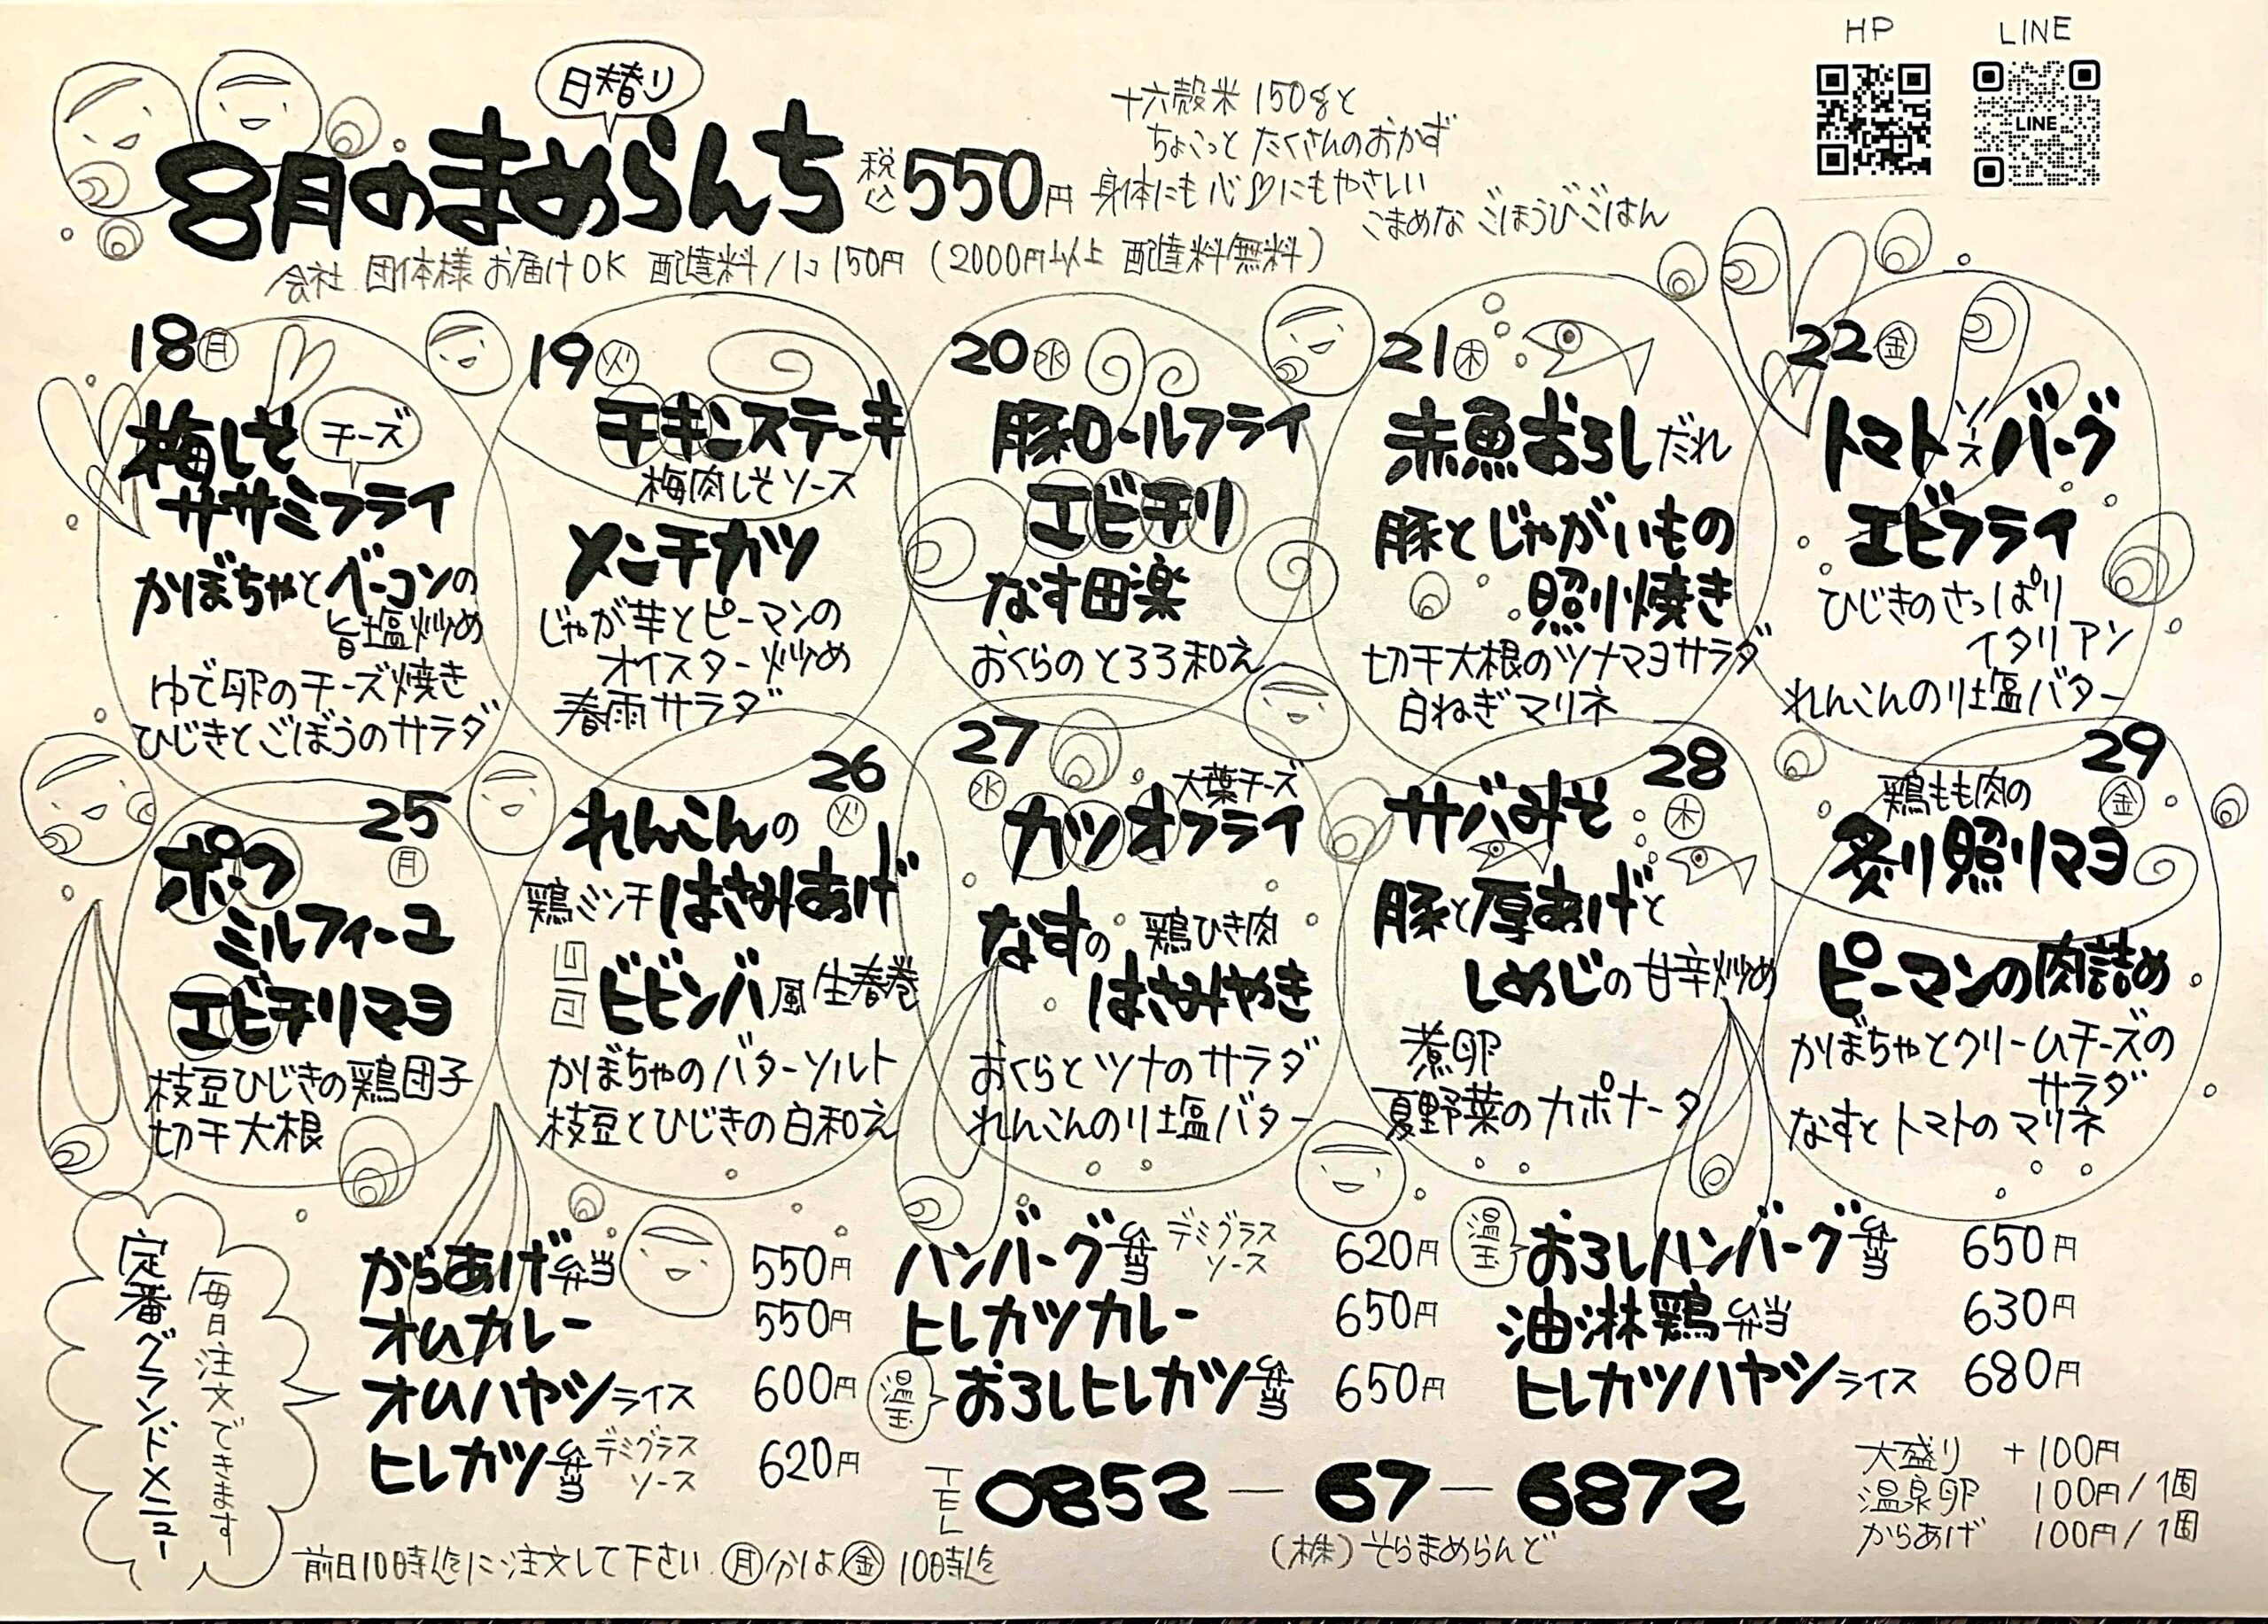 HP
LINE
LINE
日替り
8月のまめらんち
税込550円
十六穀米150gと
ちょこっとたくさんのおかず
身体にも心♡にもやさしい
こまめなごほうびごはん
会社 団体様 お届けOK 配達料/1コ150円(2000円以上 配達料無料)
18月
梅しそ
チーズ
ササミフライ
かぼちゃとベーコンの
旨塩炒め
ゆで卵のチーズ焼き
ひじきとごぼうのサラダ
19火
チキンステーキ
梅肉しそソース
メンチカツ
じゃが芋とピーマンの
オイスター炒め
春雨サラダ
20水
豚ロールフライ
エビチリ
なす田楽
おくらのとろろ和え
21木
赤魚おろしだれ
豚とじゃがいもの
照り焼き
切干大根のツナマヨサラダ
白ねぎマリネ
22金
トマトソースバーグ
エビフライ
ひじきのさっぱり
イタリアン
れんこんのり塩バター
25
月
ポーク
ミルフィーユ
エビチリマヨ
枝豆ひじきの鶏団子
切干大根
26
火
れんこんの
鶏ミンチはさみあげ
ビビンバ風生春巻
かぼちゃのバターソルト
枝豆とひじきの白和え
27
水
大葉チーズ
カツオフライ
なすの鶏ひき肉
はさみやき
おくらとツナのサラダ
れんこんのり塩バター
28
木
サバみそ
豚と厚あげと
しめじの甘辛炒め
煮卵
夏野菜のカポナータ
29
金
鶏もも肉の
炙り照りマヨ
ピーマンの肉詰め
かぼちゃとクリームチーズの
サラダ
なすとトマトのマリネ
毎日注文できます
定番グランドメニュー
からあげ弁当 550円
オムカレー 550円
オムハヤシライス 600円
ヒレカツ弁当 デミグラスソース 620円
ハンバーグ弁当 デミグラスソース 620円
ヒレカツカレー 650円
温玉 おろしヒレカツ弁当 650円
温玉 おろしハンバーグ弁当 650円
油淋鶏弁当 630円
ヒレカツハヤシライス 680円
TEL 0852-67-6872
(株)そらまめらんど
大盛り +100円
温泉卵 100円/1個
からあげ 100円/1個
前日10時迄に注文して下さい 月かは金10時迄